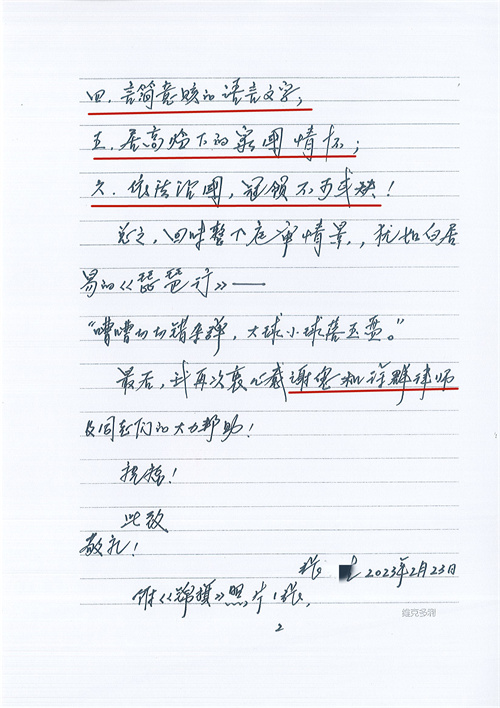 四. 言简意赅的语言文字;
五. 居高临下的家国情怀;
六. 依法治国, 冠领不可或缺!
总之, 回味整个庭审情景, 犹如白居
易的《琵琶行》——
“嘈嘈切切错杂弹, 大球小球落玉盘。”
最后, 我再次衷心感谢 和 群律师
及同志们的大力帮助!
祝福!
此致
敬礼!
张 2023年2月23日
附《锦旗》照片1张。
2